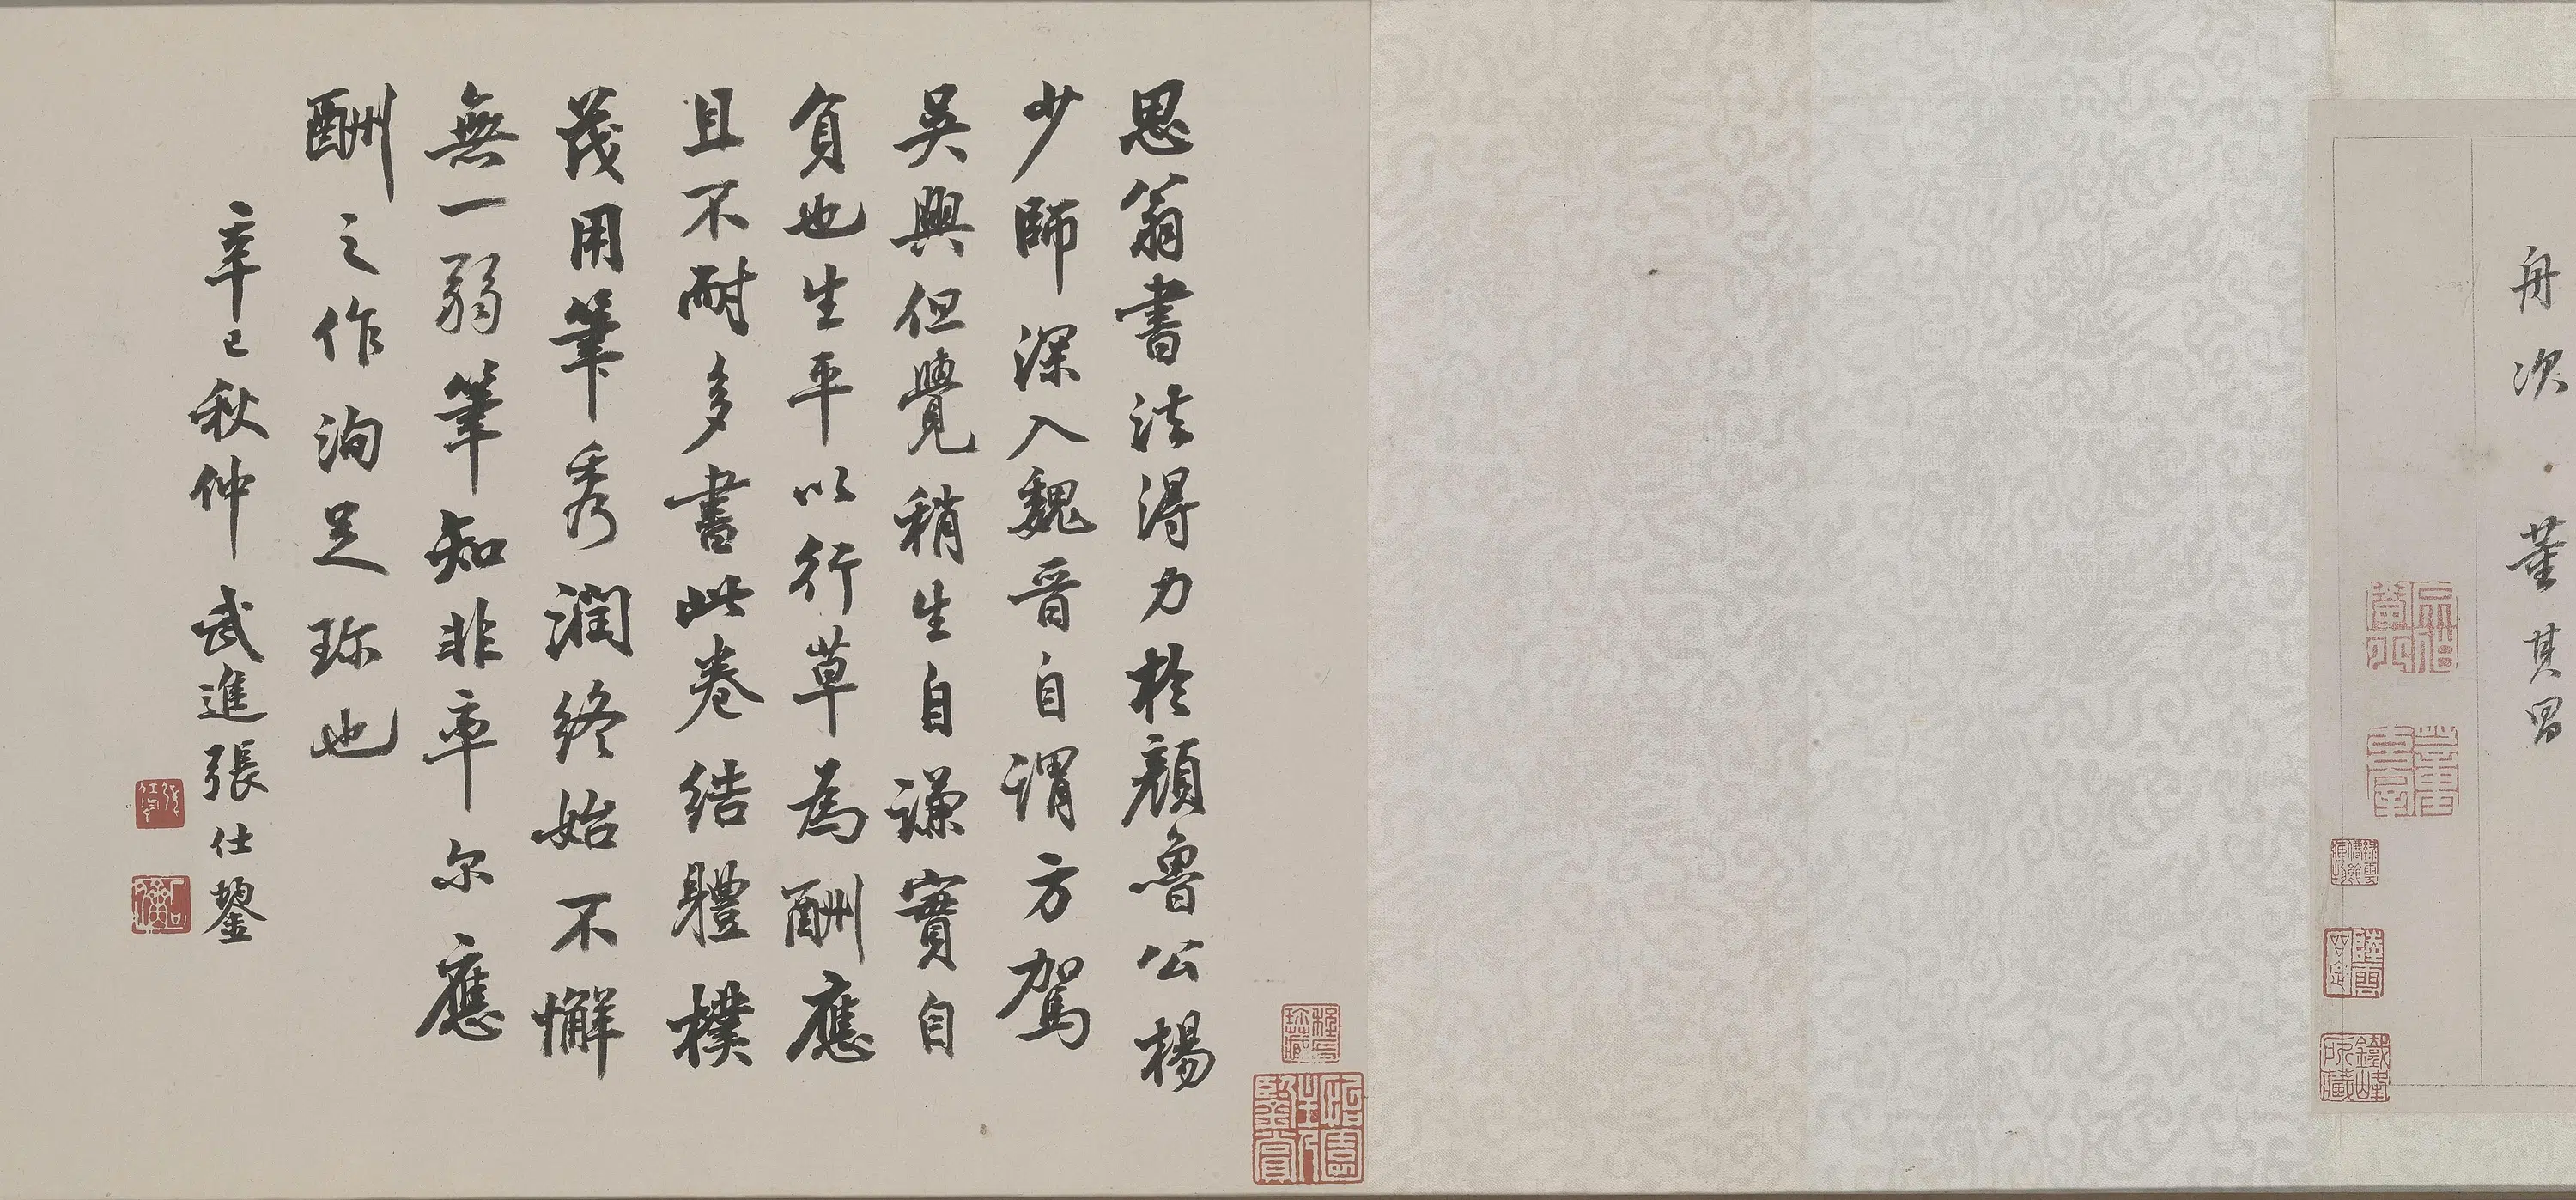 舟次 董其昌
思翁書法得力於顏魯公楊
少師深入魏晉自謂方駕
吳興但覺稍生自謙實自
負也生平以行草為酬應
且不耐多書此卷結體樸
茂用筆秀潤終始不懈
無一弱筆知非率尔應
酬之作洵足珎也
辛巳秋仲武進張仕鋆